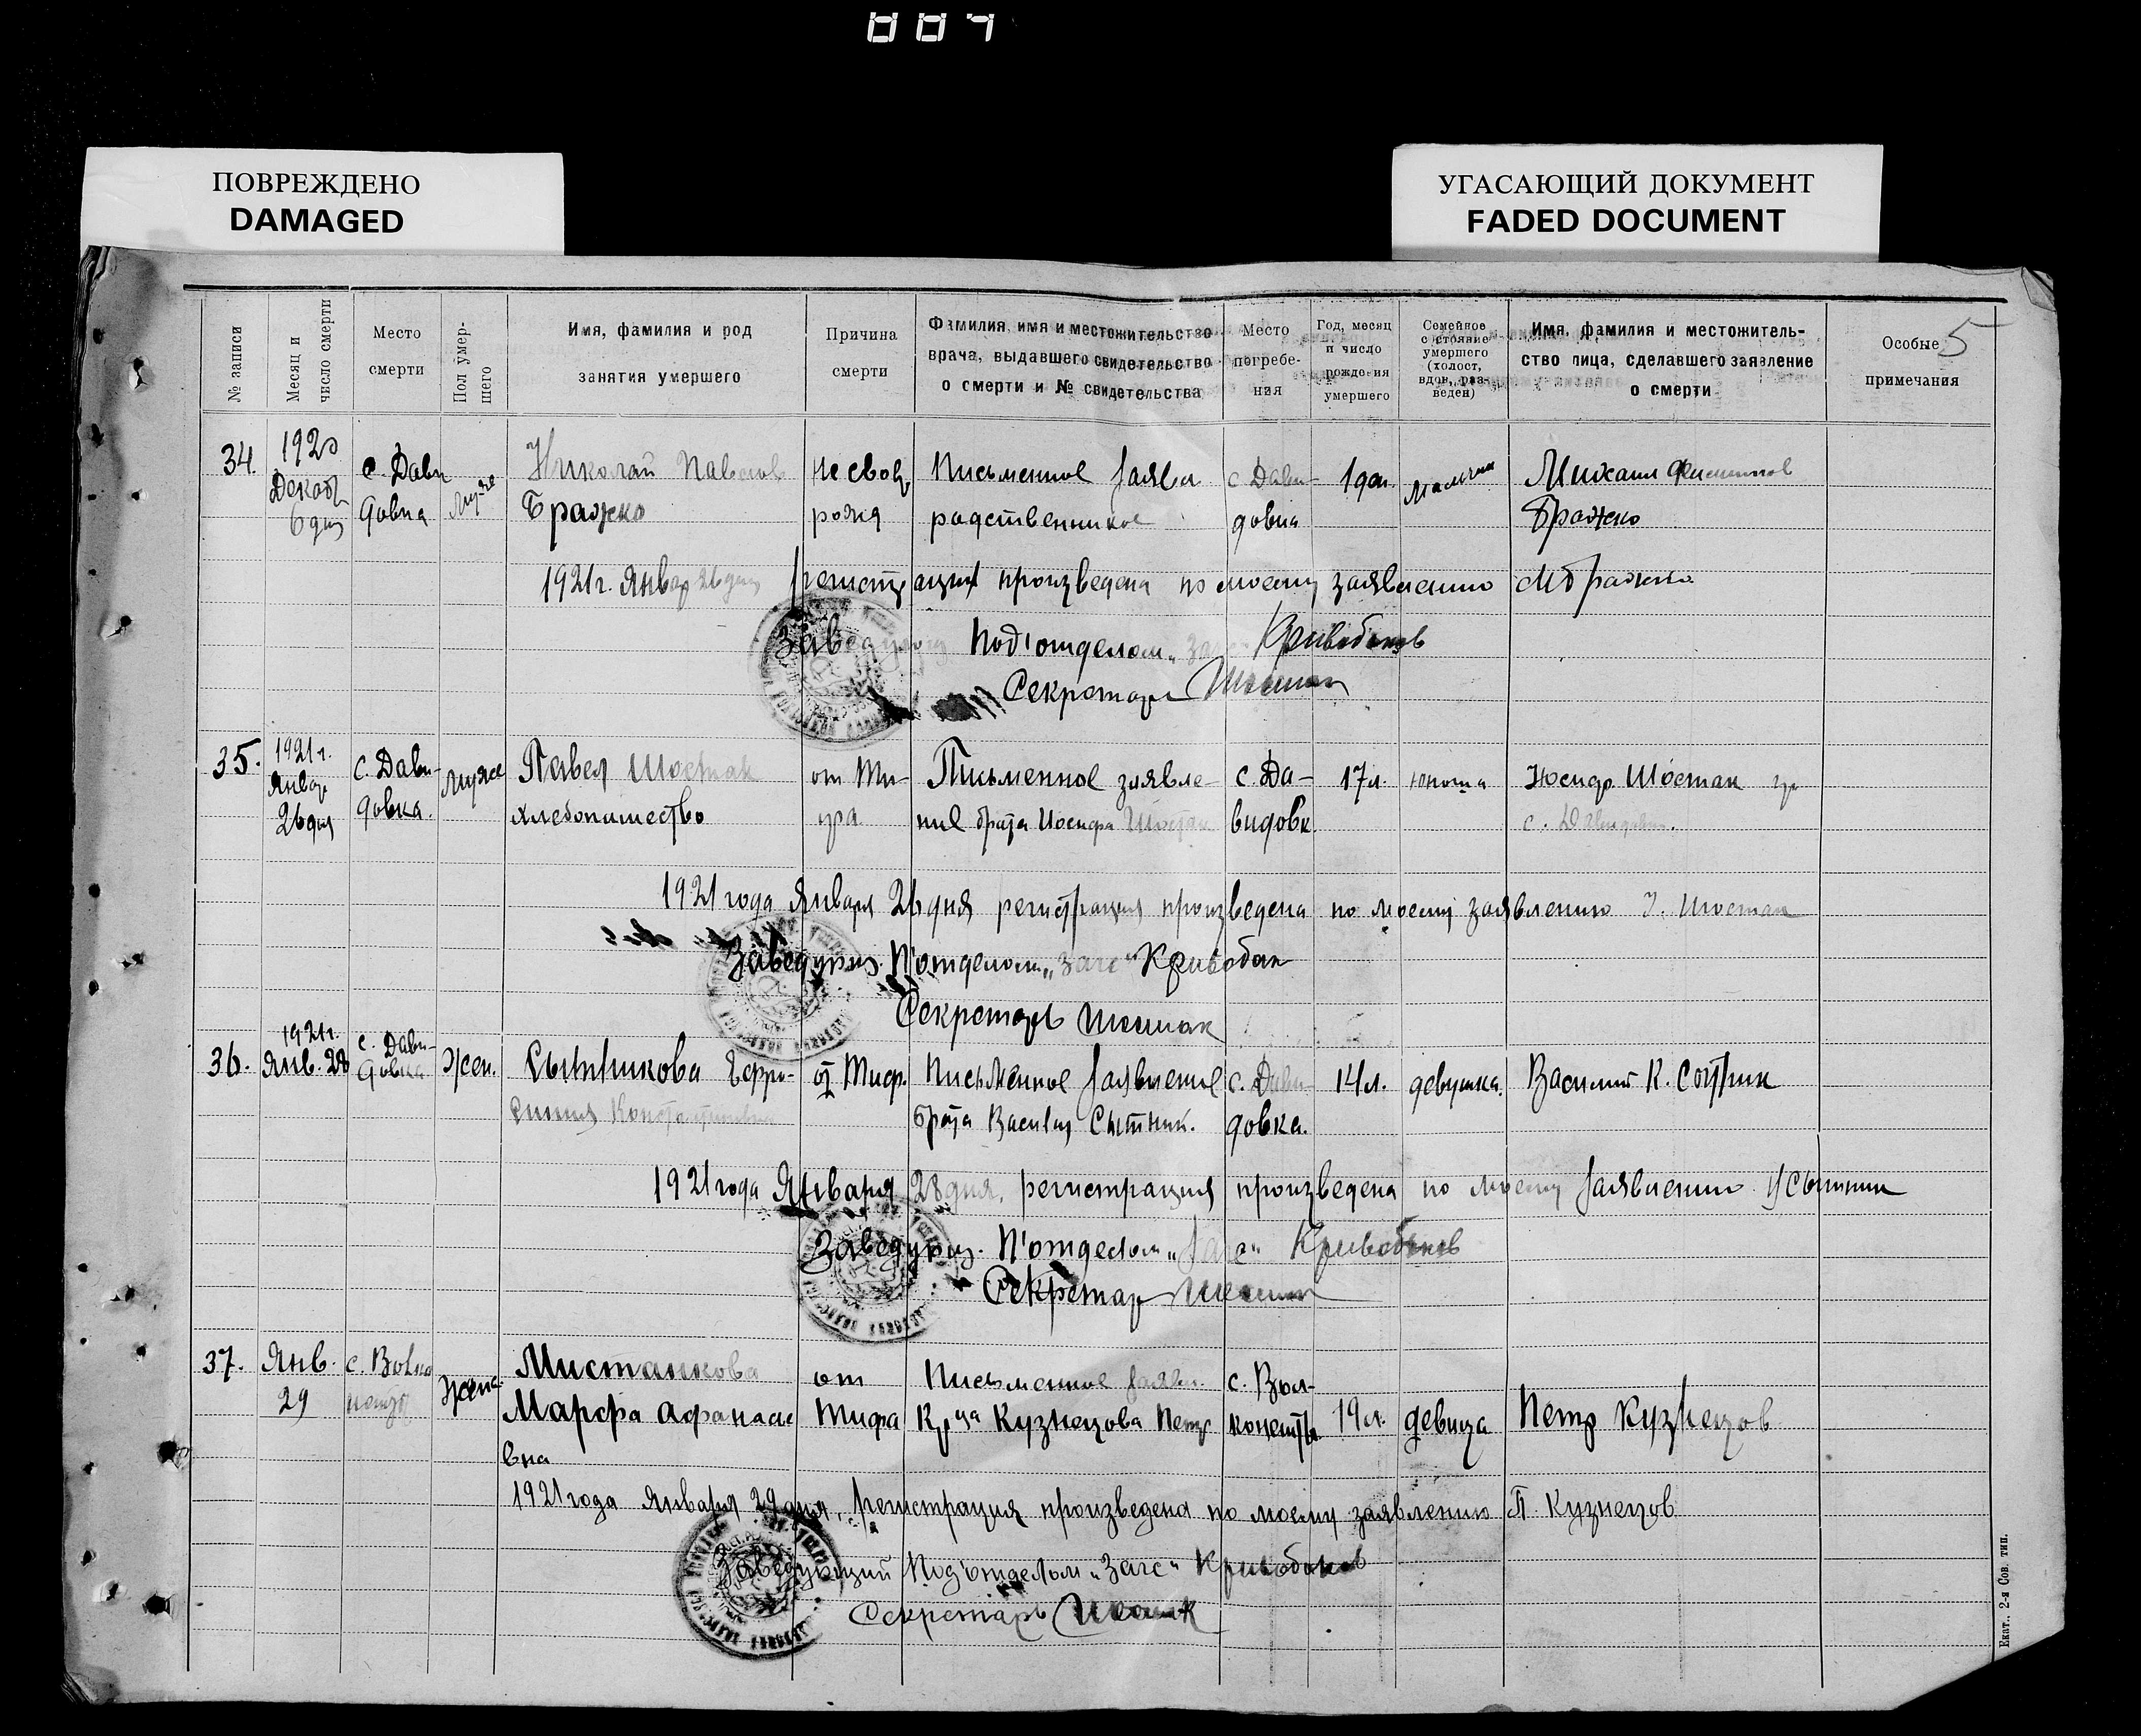 ПОВРЕЖДЕНО
DAMAGED
УГАСАЮЩИЙ ДОКУМЕНТ
FADED DOCUMENT
5
№ записи
Месяц и число смерти
Место смерти
Пол умер-шего
Имя, фамилия и род занятия умершего
Причина смерти
Фамилия, имя и местожительство врача, выдавшего свидетельство о смерти и № свидетельства
Место погребе-ния
Год, месяц и число рождения умершего
Семейное состояние умершего (холост, вдов, раз-веден)
Имя, фамилия и местожитель-ство лица, сделавшего заявление о смерти
Особые примечания
34. 1920 Николай Павелов Письменное заявл с Дави- Михаил
Декабр с. Дави
6 дня довка Бражко рожд родственников довка Бражко
1921 г. Январ 26 дня регистрация произведена по моему заявлению М Бражко
Заведующ Под'отделом „Загс" Кривобоков
Секретарь Шостак
35. 1921 г. с. Дави- Муже Павел Шостак от Ти- Письменное заявле- с. Да- 17 л. юноша Иосиф Шостак гр
Январ довка. хлебопашество фа ние брата Иосифа Шостак видовк с. Давидовк.
26 дня
1921 года Января 26 дня регистрация произведена по моему заявлению И. Шостак
Заведующ. П'отделом „Загс" Кривобок
Секретарь Шостак
1921 г. с. Дави-
36. Янв. 28 довка Жен. Сытникова Ефро- от Тиф. Письменное заявление с. Дави 14 л. девушка. Василий К. Сытник
синия Константиновна брата Василия Сытник. довка.
1921 года Января 28 дня, регистрация произведена по моему заявлению Сытник
Заведующ. П'отделом „Загс" Кривобоков
Секретар Шостак
37. Янв. Мистанкова от Письменное заявл. с. Вол-
29 Женс. Марфа Афанасье Тифа Кр-ца Кузнецова Петр 19 л. девица Петр Кузнецов
вна
1921 года Января 29 дня, регистрация произведена по моему заявлению П. Кузнецов
Заведующий Под'отделом „Загс" Кривобоков
Секретарь Шостак
Екат. 2-я Сов. тип.